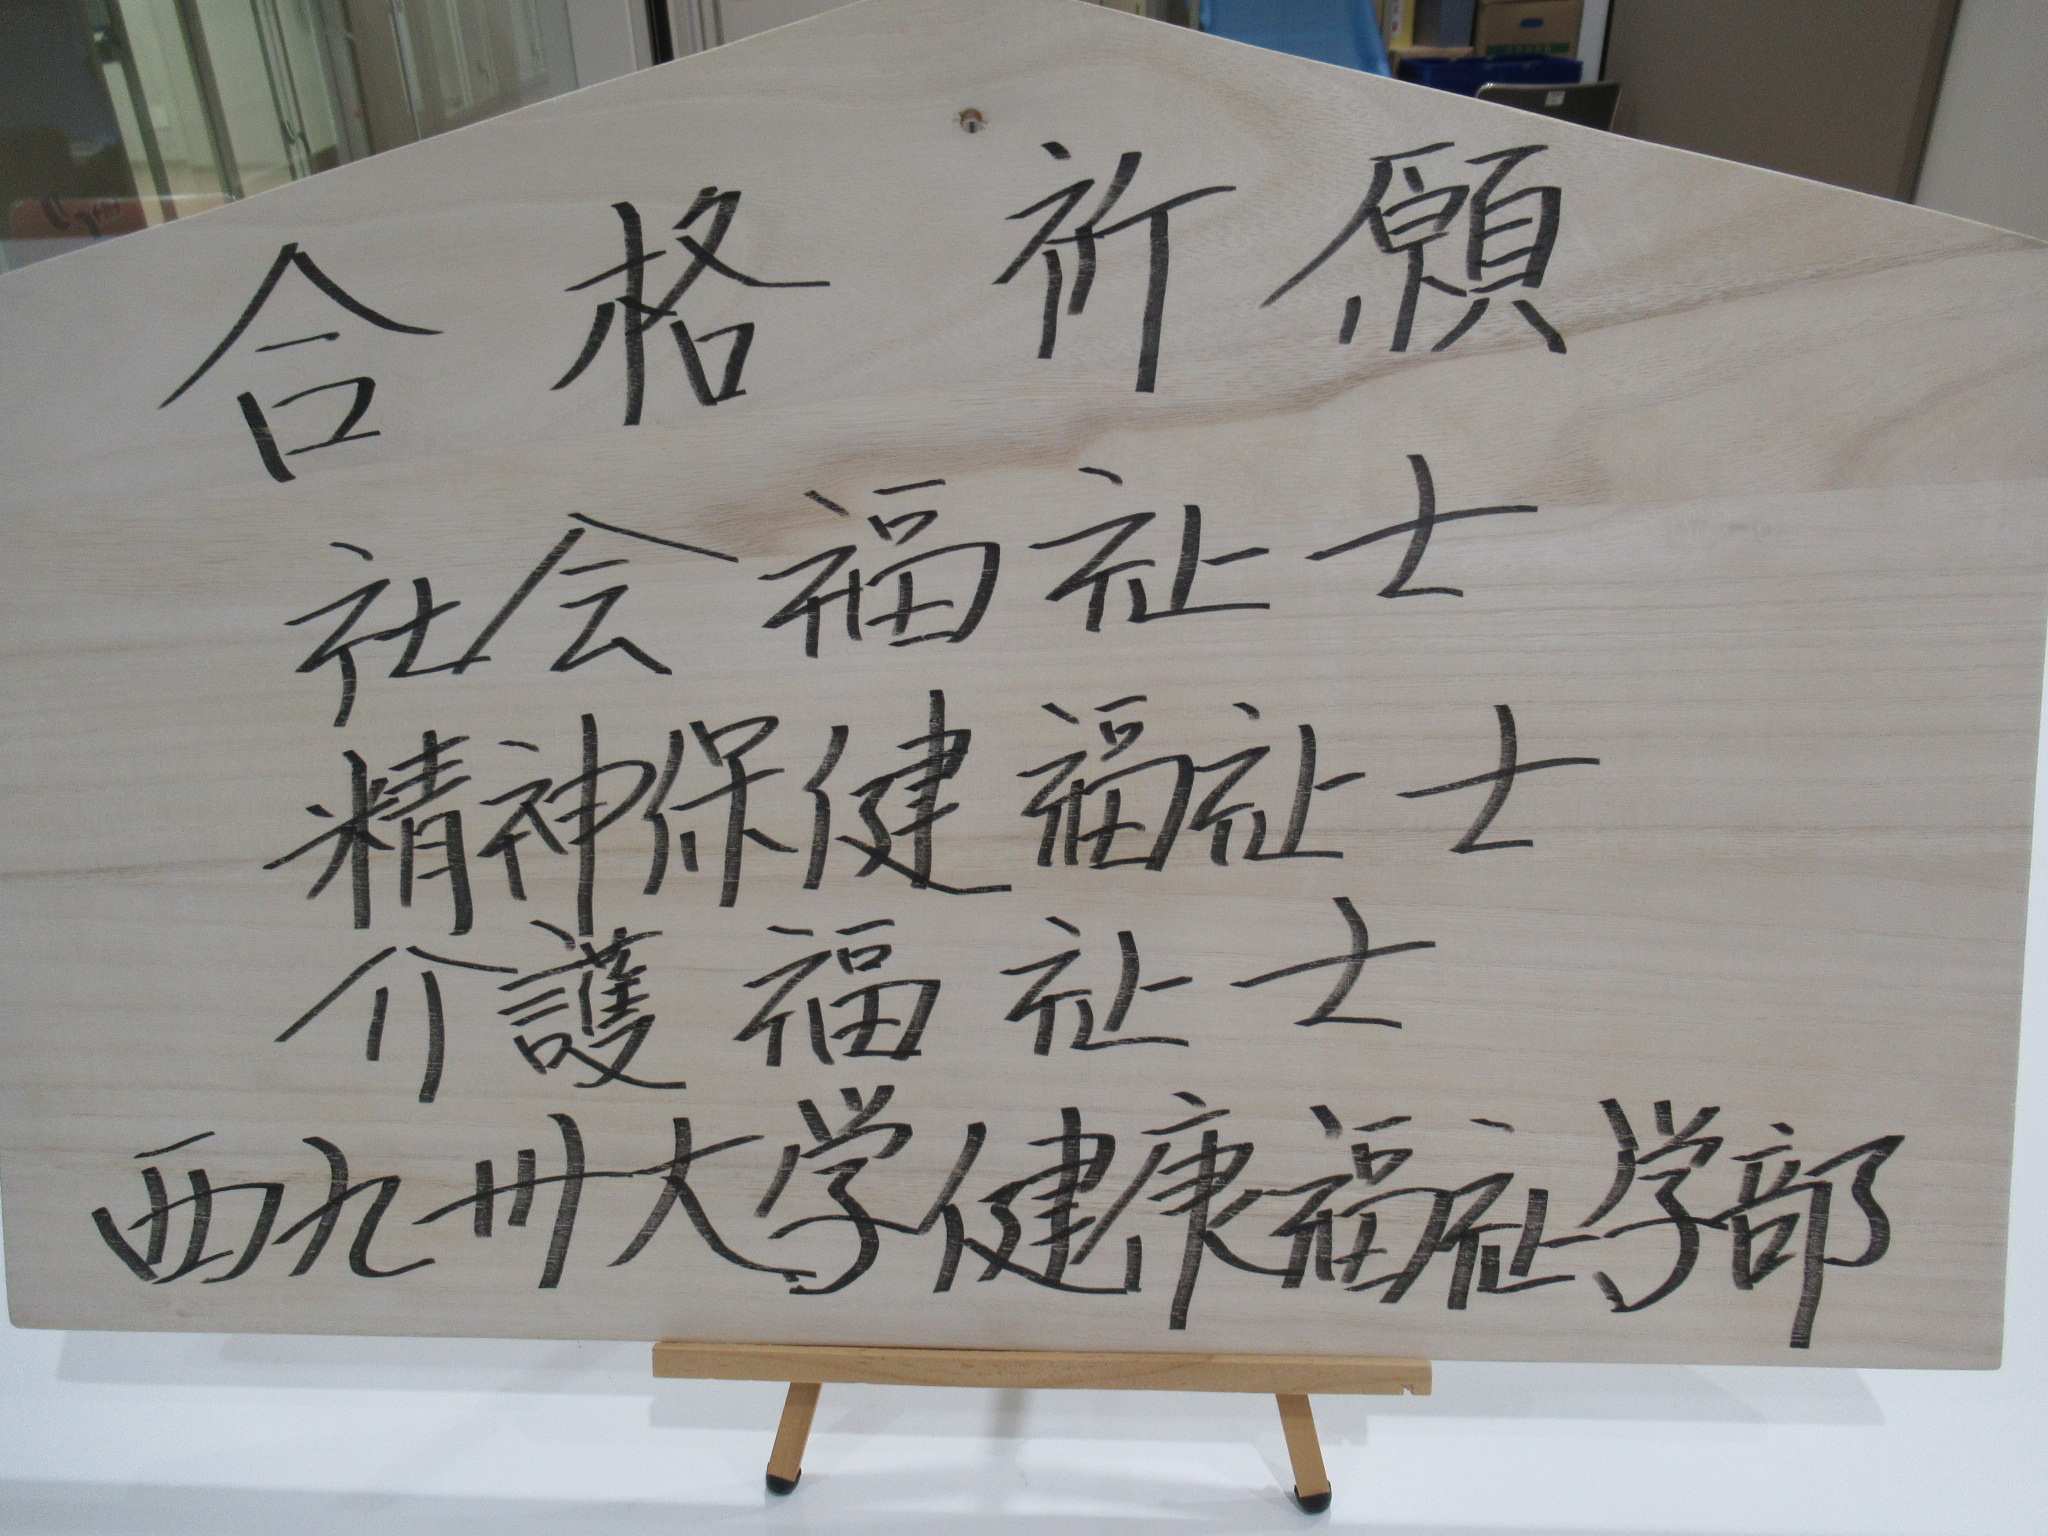 合格祈願
社会福祉士
精神保健福祉士
介護福祉士
西九州大学健康福祉学部